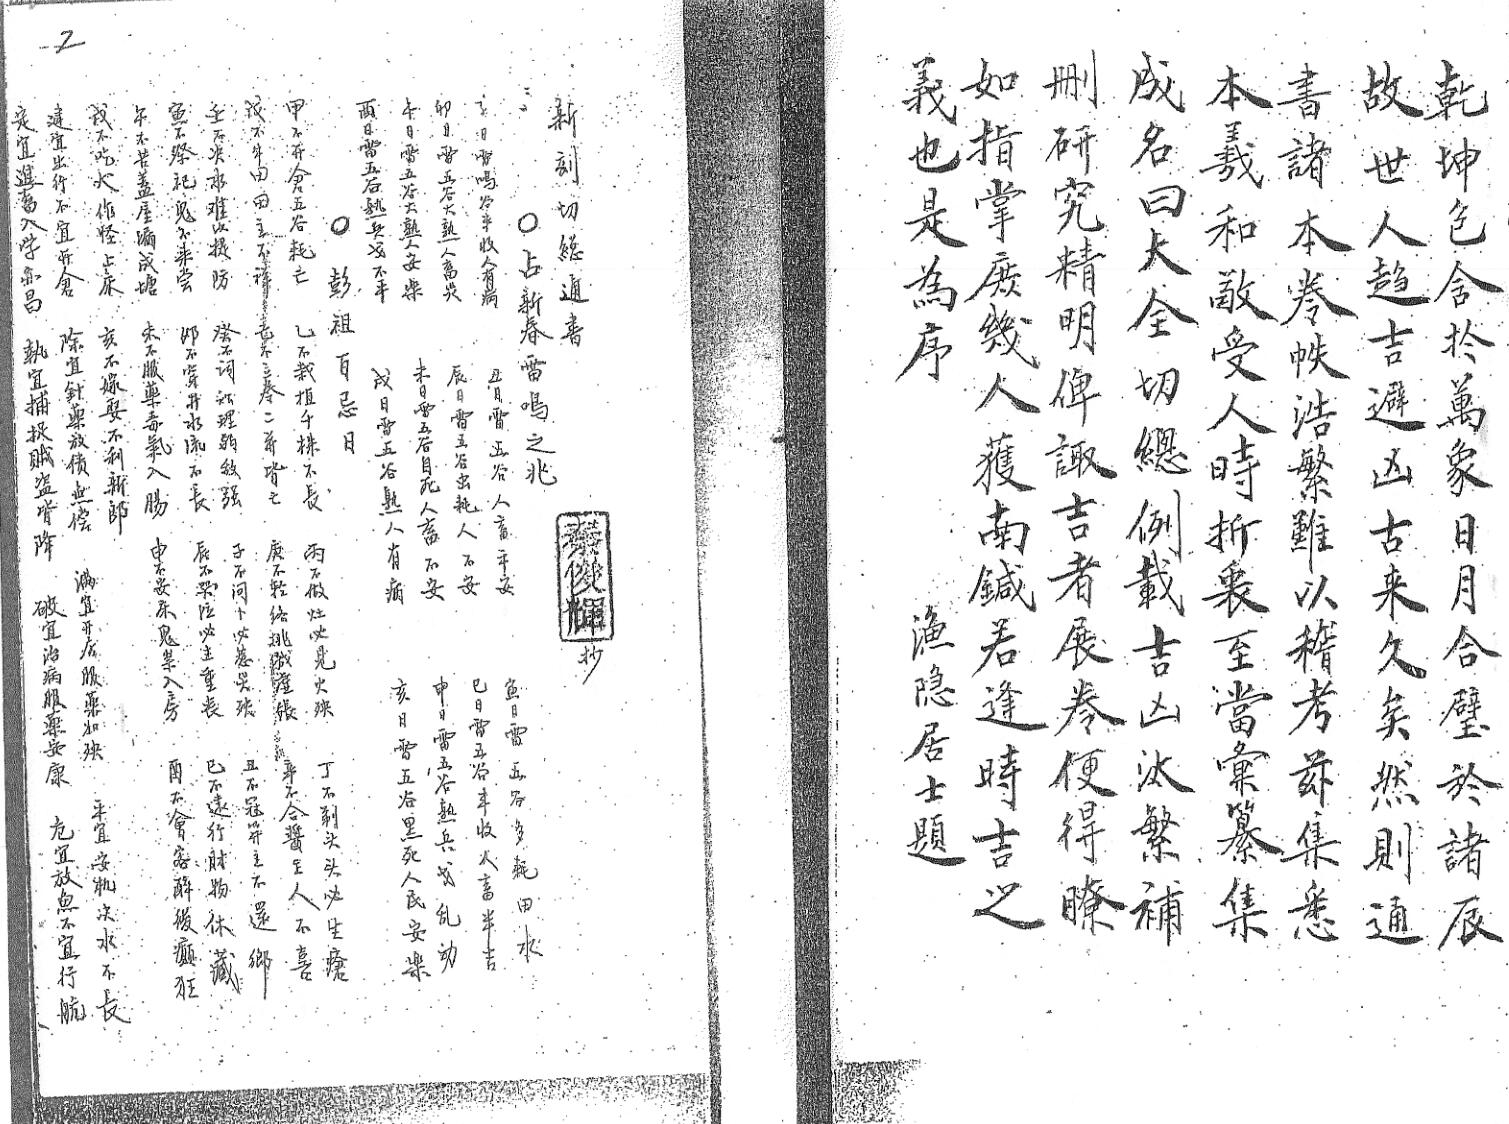 乾坤包含於萬象日月合璧於諸辰
故世人趋吉避凶古来久矣然則通
書諸本卷帙浩繁難以稽考茲集悉
本羲和敵受人時折衷至當彙纂集
成名曰大全切總例載吉凶汰繁補
刪研究精明俾諏吉者展卷便得瞭
如指掌庶幾人獲南鍼若逢時吉之
義也是為序
漁隐居士題
2
新刻切總通書
○占新春雷鳴之兆
俊輝抄
子日雷鳴谷半收人有病
丑日雷五谷人畜平安
寅日雷五谷多耗田水
卯日雷五谷大熟人畜災
辰日雷五谷虫耗人不安
巳日雷五谷半收人畜半吉
午日雷五谷大熟人安樂
未日雷五谷自死人畜不安
申日雷五谷熟兵戈乱动
酉日雷五谷熟兵戈不年
戌日雷五谷熟人有病
亥日雷五谷黑死人民安樂
○彭祖百忌日
甲不开倉五谷耗亡
乙不栽植千株不長
丙不做灶必見火殃
丁不剃头头必生瘡
戊不牛由田主不祥
己不立券二前皆亡
庚不經絡
辛不合醬主人不喜
壬不决水难以提防
癸不詞訟理弱敌强
子不问卜必惹災殃
丑不冠笄主不還鄉
寅不祭祀鬼不来尝
卯不穿井水流不長
辰不哭泣必主重丧
巳不遠行財物休藏
午不苫盖屋漏成塘
未不服藥毒氣入腸
申不安床鬼祟入房
酉不會客醉後癲狂
戌不吃犬作怪上床
亥不嫁娶不利新郎
建宜出行不宜开倉
除宜針藥放債無偿
滿宜开店服藥加殃
平宜安机决水不長
定宜進畜入学亦昌
執宜捕捉賊盗皆降
破宜治病服藥安康
危宜放魚不宜行航